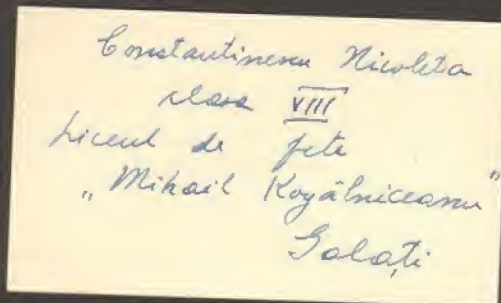 Constantinescu Nicoleta
clasa VIII
Liceul de fete
„Mihail Kogălniceanu"
Galați